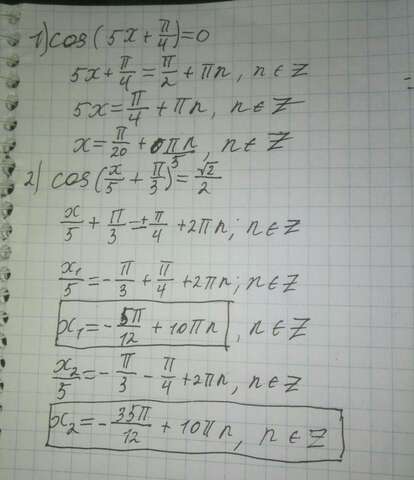 1) cos(5x + π/4) = 0
5x + π/4 = π/2 + πn, n ∈ Z
5x = π/4 + πn, n ∈ Z
x = π/20 + πn/5, n ∈ Z
2) cos(x/5 + π/3) = √2/2
x/5 + π/3 = ± π/4 + 2πn; n ∈ Z
x₁/5 = -π/3 + π/4 + 2πn; n ∈ Z
x₁ = -5π/12 + 10πn, n ∈ Z
x₂/5 = -π/3 - π/4 + 2πn, n ∈ Z
x₂ = -35π/12 + 10πn, n ∈ Z